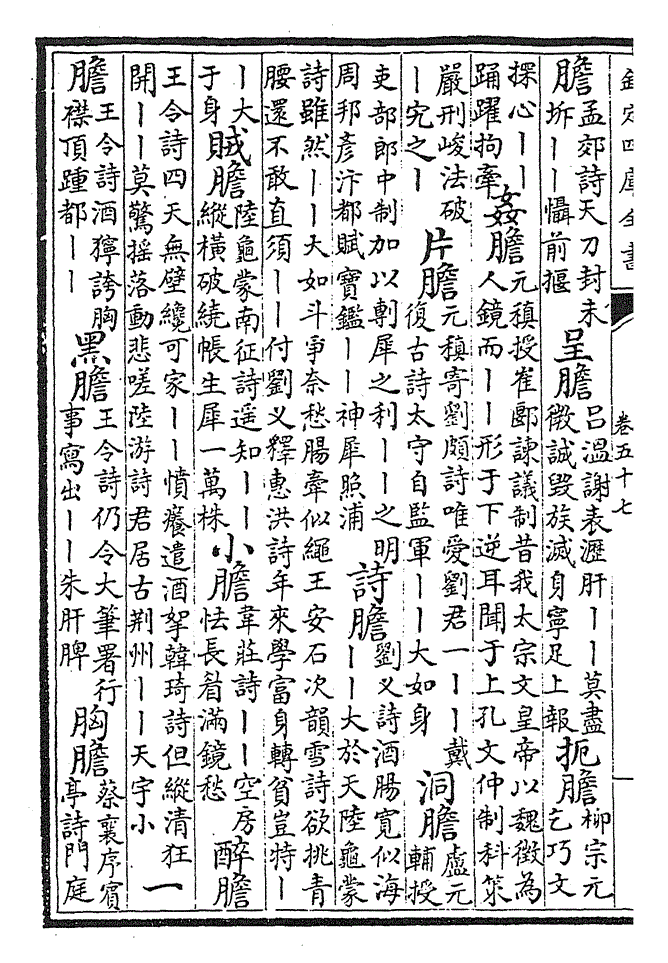 欽定四庫全書
卷五十七
膽
孟郊詩天刀封未
坼丨丨懾前摳
呈膽
呂溫謝表瀝肝丨丨莫盡
微誠毀族滅身寧足上報
扼膽
柳宗元
乞巧文
探心丨丨
踊躍拘牽
姦膽
元稹授崔郾諫議制昔我太宗文皇帝以魏徵為
人鏡而丨丨形于下逆耳聞于上孔文仲制科策
嚴刑峻法破
丨宄之丨
片膽
元稹寄劉頗詩唯愛劉君一丨丨戴
復古詩太守自監軍丨丨大如身
洞膽
盧元
輔授
吏部郎中制加以剸犀之利丨丨之明
周邦彥汴都賦寶鑑丨丨神犀照浦
詩膽
劉乂詩酒腸寬似海
丨丨大於天陸龜蒙
詩雖然丨丨大如斗爭奈愁腸牽似繩王安石次韻雪詩欲挑青
腰還不敢直須丨丨付劉乂釋惠洪詩年來學富身轉貧豈特丨
丨大
于身
賊膽
陸龜蒙南征詩遥知丨丨
縱橫破繞帳生犀一萬株
小膽
韋莊詩丨丨空房
怯長眉滿鏡愁
醉膽
王令詩四天無壁纔可家丨丨憤癢遣酒拏韓琦詩但縱清狂
開丨丨莫驚搖落動悲嗟陸游詩君居古荆州丨丨天宇小
一
膽
王令詩酒獰誇胸
襟頂踵都丨丨
黑膽
王令詩仍令大筆署行
事寫出丨丨朱肝脾
胸膽
蔡襄序賓
亭詩門庭